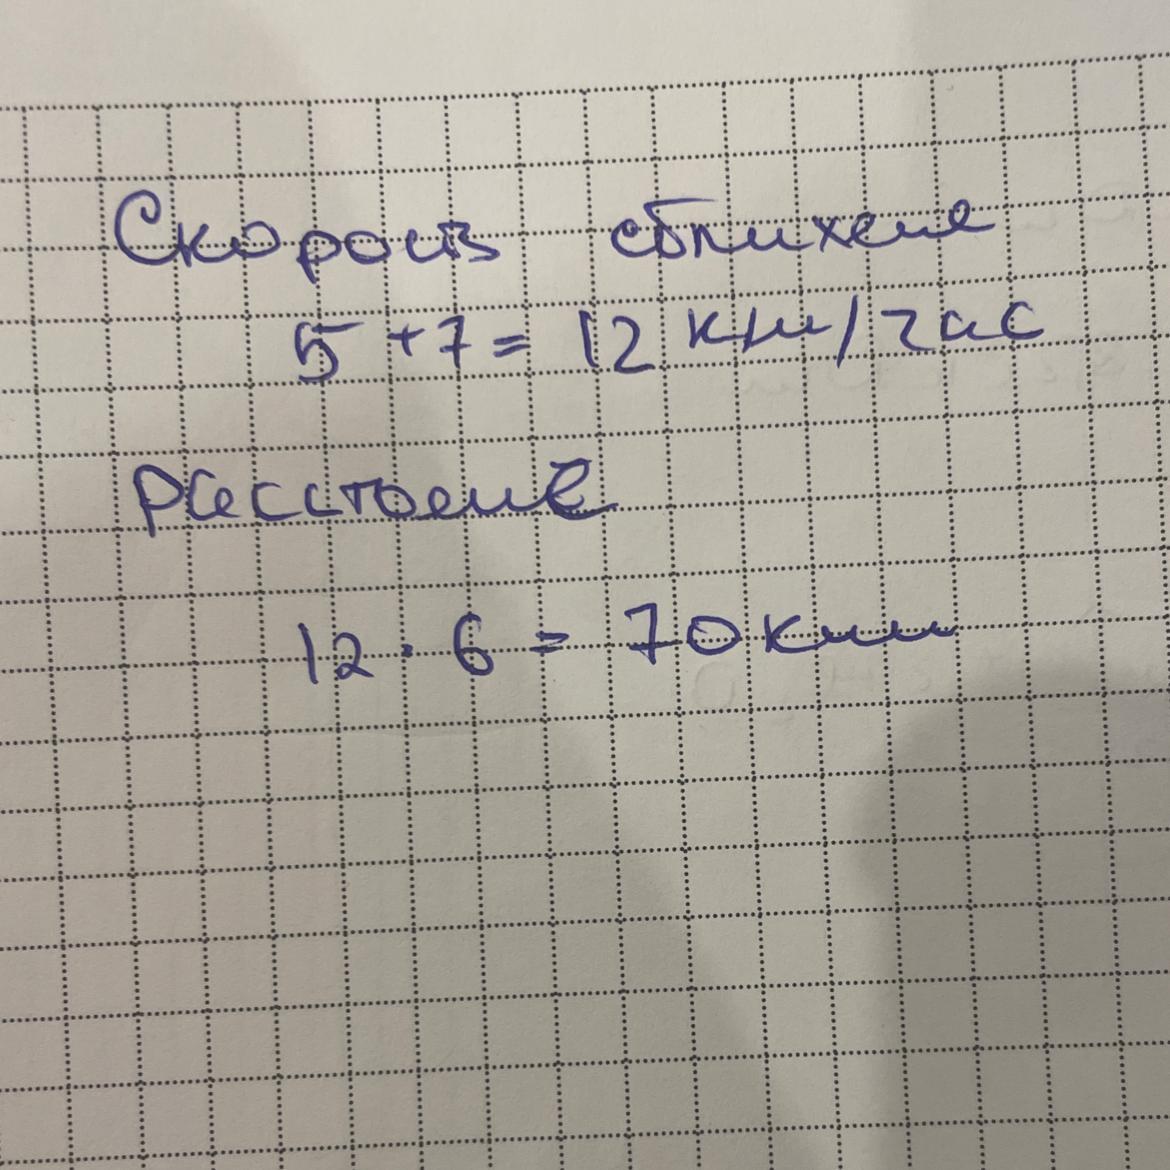 Скорость сближение
5 + 7 = 12 км/час
расстоение
12 · 6 = 70 км